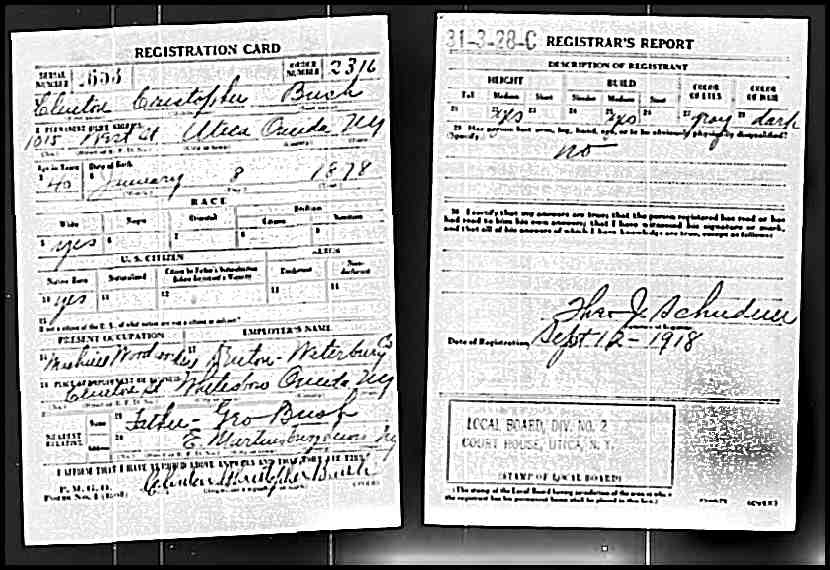 REGISTRATION CARD
SERIAL NUMBER
ORDER NUMBER 2316
Clinton Cristopher Bush
PERMANENT HOME ADDRESS
1015 West St Utica Oneida NY
Age in Years Date of Birth
40 January 8 1878
RACE
White Negro Oriental Indian
Citizen Noncitizen
5 yes 6 7 8 9
U. S. CITIZEN ALIEN
Native Born Naturalized Citizen by Father's Naturalization Before Registrant's Majority Declarant Non-declarant
10 yes 11 12 13 14
15
If not a citizen of the U. S., of what nation are you a citizen or subject?
PRESENT OCCUPATION EMPLOYER'S NAME
16 17 Waterbury Co
18 PLACE OF EMPLOYMENT OR BUSINESS
Clinton St Whitesboro Oneida NY
NEAREST RELATIVE Name 19 Father - Geo Bush
Address 20 E. Martinsburg NY
I AFFIRM THAT I HAVE VERIFIED ABOVE ANSWERS AND THAT THEY ARE TRUE
P. M. G. O.
Form No. 1 (Red) Clinton Christopher Bush (OVER)
31-3-28-C REGISTRAR'S REPORT
DESCRIPTION OF REGISTRANT
HEIGHT BUILD COLOR OF EYES COLOR OF HAIR
Tall Medium Short Slender Medium Stout
21 22 yes 23 24 25 yes 26 27 gray 28 dark
29 Has person lost arm, leg, hand, eye, or is he obviously physically disqualified?
(Specify)
no
30 I certify that my answers are true; that the person registered has read or has
had read to him his own answers; that I have witnessed his signature or mark,
and that all of his answers of which I have knowledge are true, except as follows:
Thos J.
Signature of Registrar
Date of Registration Sept 12 - 1918
LOCAL BOARD, DIV. NO. 2
COURT HOUSE, UTICA, N. Y.
(STAMP OF LOCAL BOARD)
(The stamp of the Local Board having jurisdiction of the area in which
the registrant has his permanent home shall be placed in this box.)
(OVER)